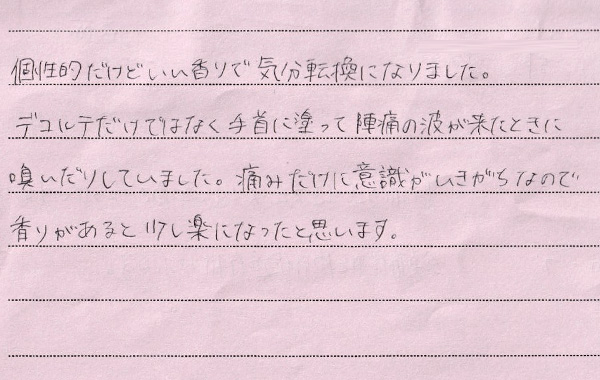 個性的だけどいい香りで気分転換になりました。
デコルテだけではなく手首に塗って陣痛の波が来たときに
嗅いだりしていました。痛みだけに意識がいきがちなので
香りがあると少し楽になったと思います。